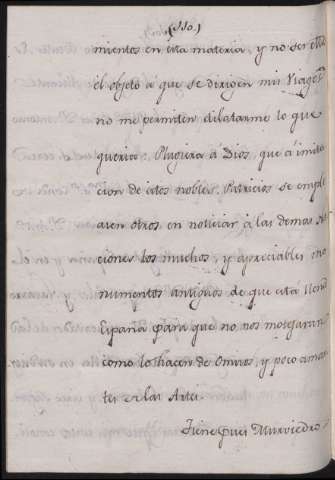 (110.)
mientos en esta materia, y no ser este
el objeto a que se dirigen mis Viages
no me permiten dilatarme lo que
querria. Plugiera à Dios, que a imita
cion de estos nobles Patricios se emple
asen otros en noticiar à las demas Na
ciones los muchos, y apreciables mo
numentos antiguos de que esta llena
España para que no nos motegaran
como lo hacen de Omisos, y poco aman
tes de las Artes.
Tiene pues Murviedro